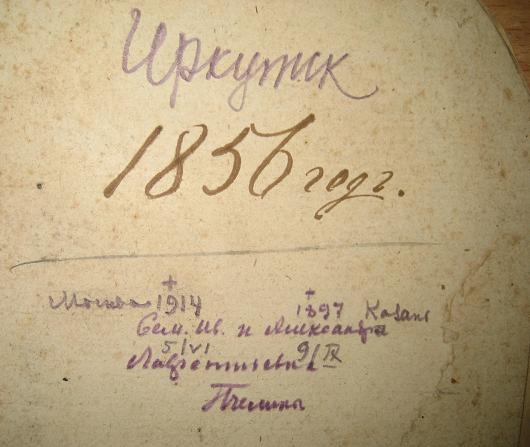 Иркутск
1856 годъ.
† †
Москва 1914 1897 Казань
Сем. Ив. и Александра
5/VI 9/IX
Лаврентьевна
Пчелины